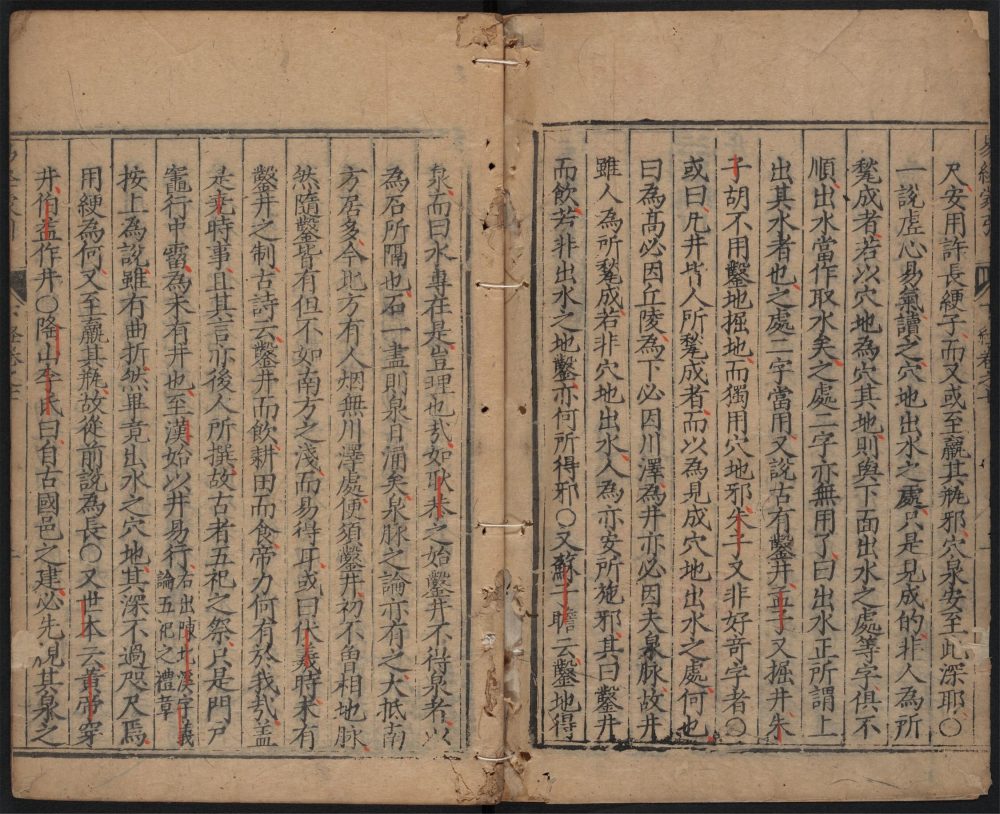 尺安用許長綆子而又或至羸其瓶邪穴泉安至此深耶○
一說虗心易氣讀之穴地出水之處只是見成的非人為所
甃成者若以穴地為穴其地則與下面出水之處等字俱不
順出水當作取水矣之處二字亦無用了曰出水正所謂上
出其水者也之處二字當用又說古有鑿井孟子又掘井朱
子胡不用鑿地掘地而獨用穴地邪朱子又非好竒字者○
或曰凡井皆人所甃成者而以為見成穴地出水之處何也
曰為髙必因丘陵為下必因川澤為井亦必因夫泉脉故井
雖人為所甃成若非穴地出水人為亦安所施邪其曰鑿井
而飲若非出水之地鑿亦何所得邪○又蘇子瞻云鑿地得
泉而曰水專在是豈理也㢤如耿恭之始鑿井不得泉者以
為石所隔也石一盡則泉自涌矣泉脉之論亦有之大抵南
方居多今北方有人烟無川澤處便須鑿井初不曾相地脉
然隨鑿皆有但不如南方之淺而易得耳或曰伏羲時未有
鑿井之制古詩云鑿井而飲耕田而食帝力何有於我㢤盖
是尭時事且其言亦後人所撰故古者五祀之祭只是門戶
竈行中霤為未有井也至漢始以井易行右出陳北溪字義論五祀之禮章
按上為說雖有曲折然畢竟出水之穴地其深不過咫尺焉
用綆為何又至羸其瓶故從前說為長○又世本云黄帝穿
井伯益作井○隆山李氏曰自古國邑之建必先視其泉之